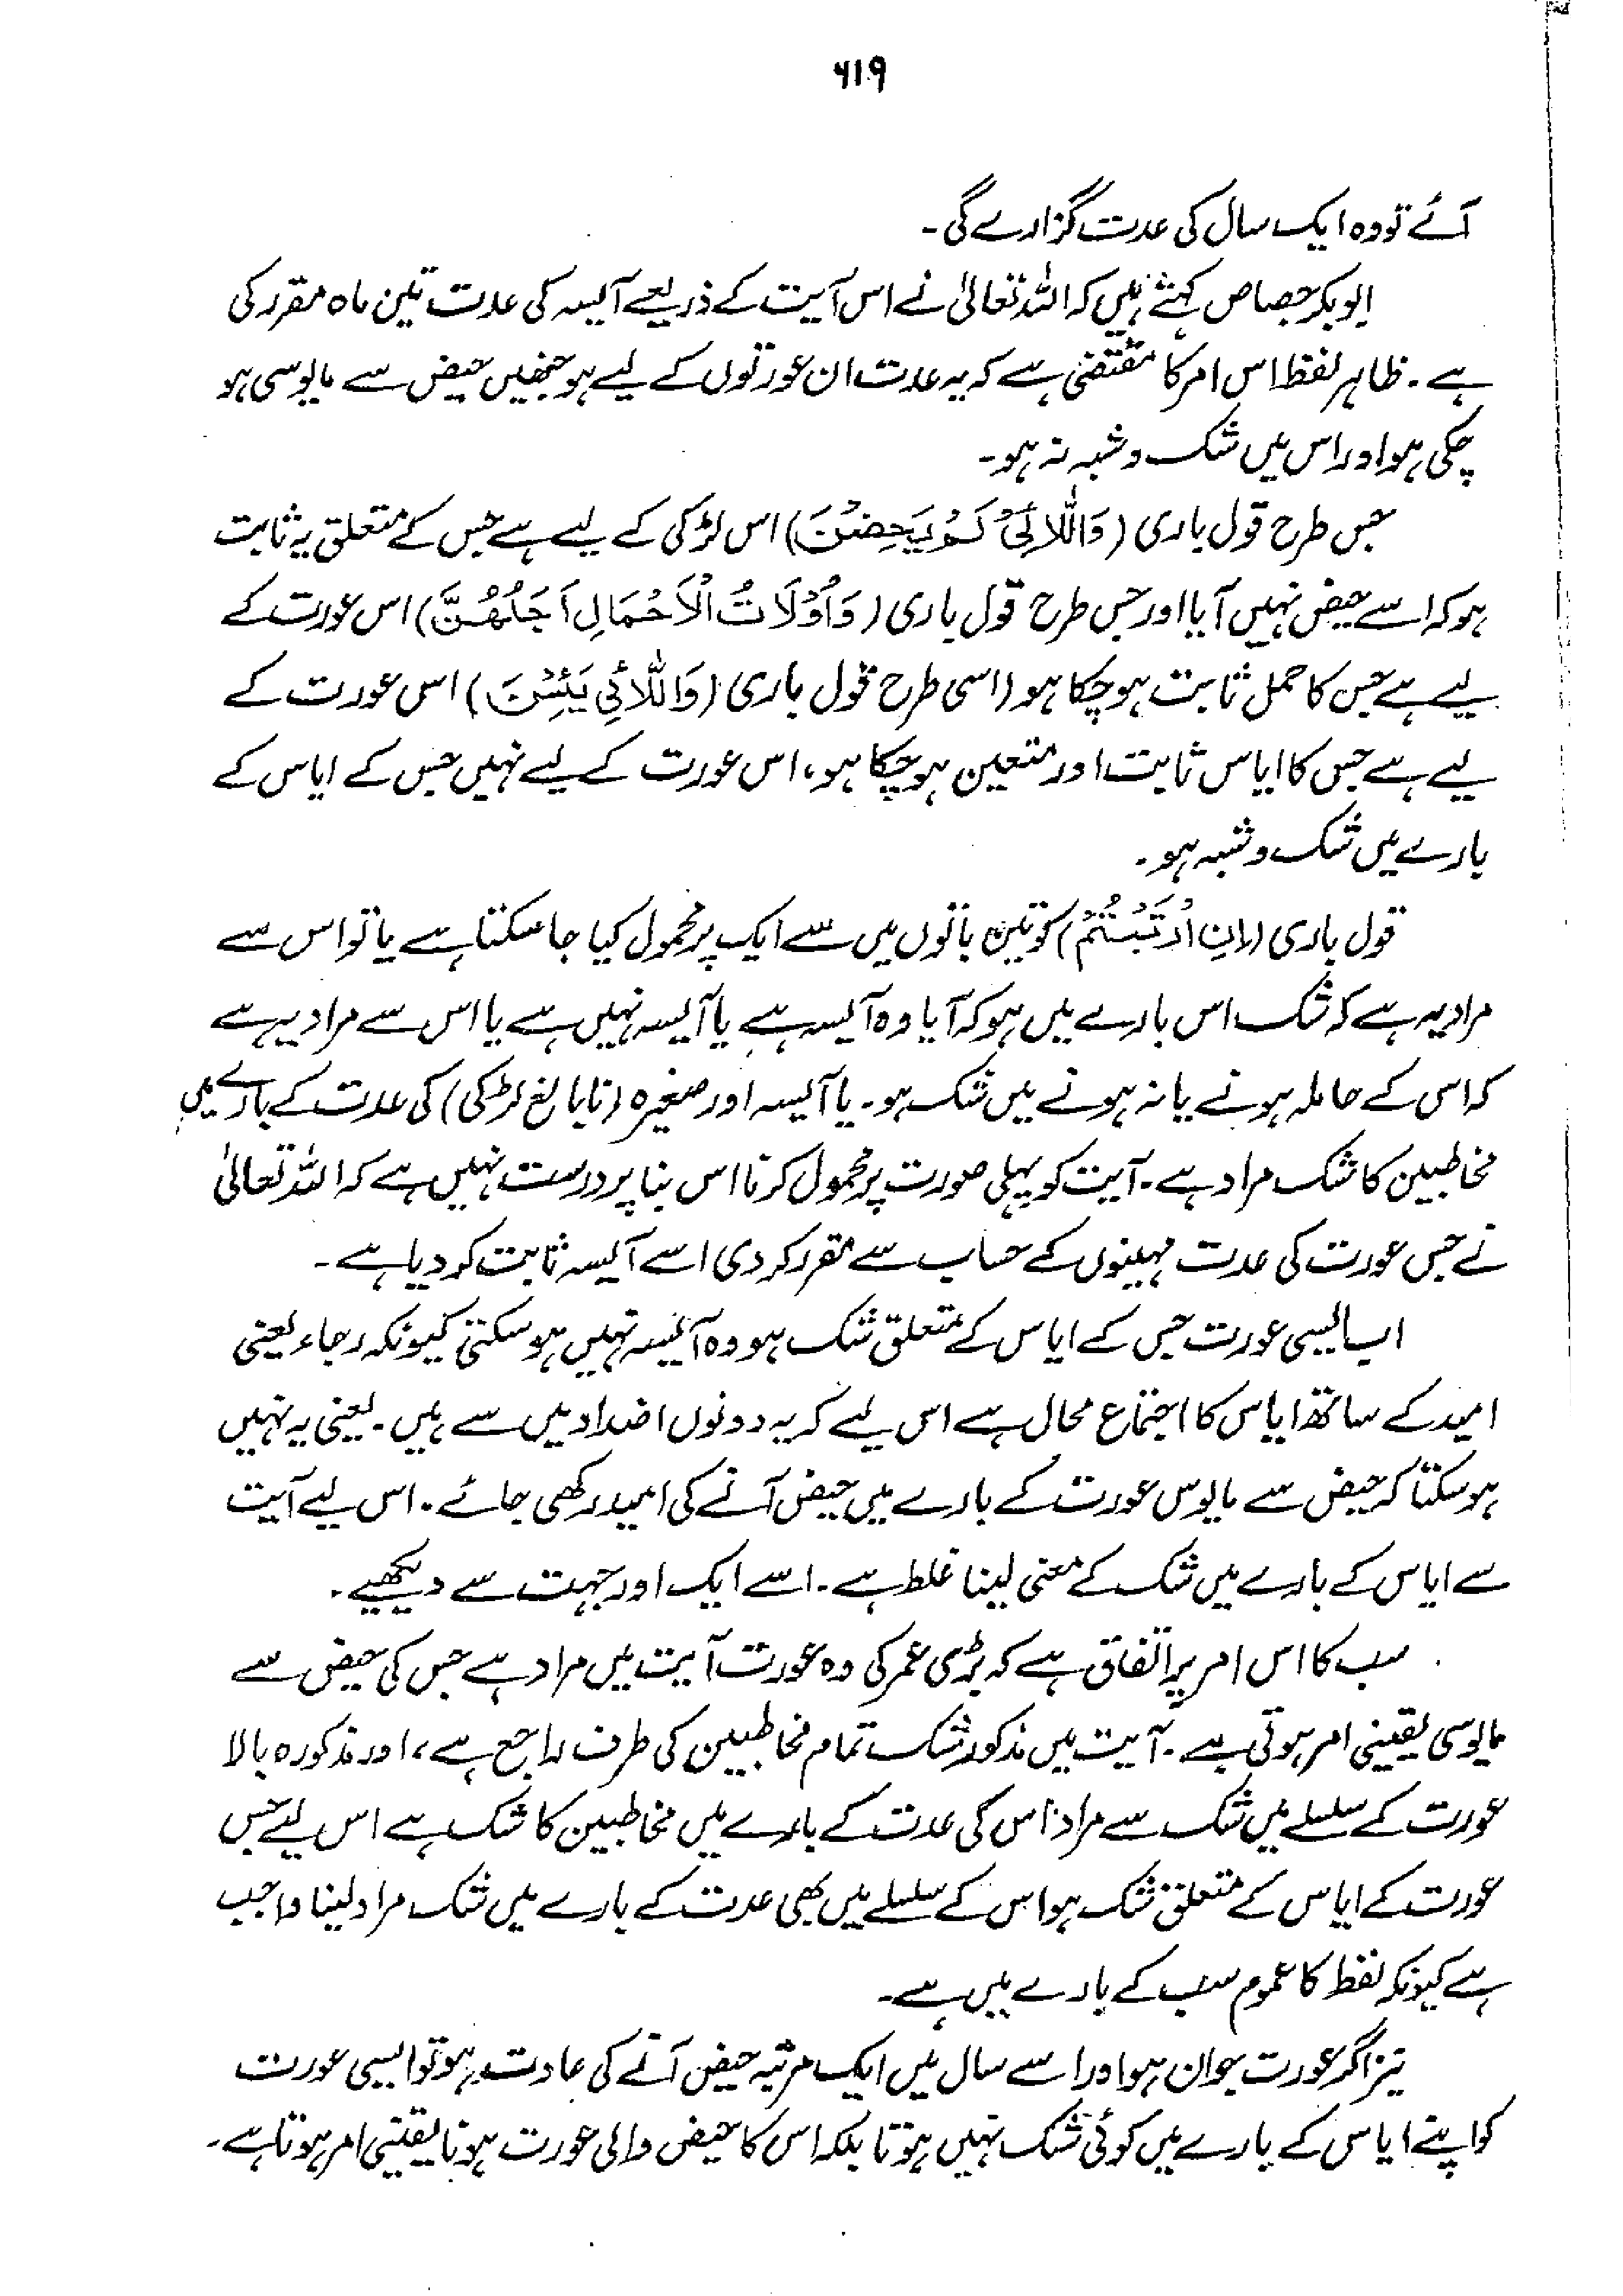 ۶۱۹
آئے تو وہ ایک سال کی عدت گزارے گی۔
ابوبکر جصاص کہتے ہیں کہ اللہ تعالیٰ نے اس آیت کے ذریعے آئیسہ کی عدت تین ماہ مقرر کی
ہے۔ ظاہر لفظ اس امر کا مقتضی ہے کہ یہ عدت ان عورتوں کے لیے ہو جنھیں حیض سے مایوسی ہو
چکی ہو اور اس میں شک و شبہ نہ ہو۔
جس طرح قول باری (وَاللَّائِیْ لَمْ یَحِضْنَ) اس لڑکی کے لیے ہے جس کے متعلق یہ ثابت
ہو کہ اسے حیض نہیں آیا اور جس طرح قول باری (وَاُوْلَاتُ الْاَحْمَالِ اَجَلُهُنَّ) اس عورت کے
لیے ہے جس کا حمل ثابت ہو چکا ہو (اسی طرح قول باری (وَاللَّائِی یَئِسْنَ) اس عورت کے
لیے ہے جس کا ایاس ثابت اور متعین ہو چکا ہو، اس عورت کے لیے نہیں جس کے ایاس کے
بارے میں شک و شبہ ہو۔
قول باری (اِنِ ارْتَبْتُمْ) کو تین باتوں میں سے ایک پر محمول کیا جا سکتا ہے یا تو اس سے
مراد یہ ہے کہ شک اس بارے میں ہو کہ آیا وہ آئیسہ ہے یا آئیسہ نہیں ہے یا اس سے مراد یہ ہے
کہ اس کے حاملہ ہونے یا نہ ہونے میں شک ہو۔ یا آئیسہ اور صغیرہ (نابالغ لڑکی) کی عدت کے بارے میں
مخاطبین کا شک مراد ہے۔ آیت کو پہلی صورت پر محمول کرنا اس بنا پر درست نہیں ہے کہ اللہ تعالیٰ
نے جس عورت کی عدت مہینوں کے حساب سے مقرر کر دی اسے آئیسہ ثابت کر دیا ہے۔
اب ایسی عورت جس کے ایاس کے متعلق شک ہو وہ آئیسہ نہیں ہو سکتی کیونکہ رجاء یعنی
امید کے ساتھ ایاس کا اجتماع محال ہے اس لیے کہ یہ دونوں اضداد میں سے ہیں۔ یعنی یہ نہیں
ہو سکتا کہ حیض سے مایوس عورت کے بارے میں حیض آنے کی امید رکھی جائے۔ اس لیے آیت
سے ایاس کے بارے میں شک کے معنی لینا غلط ہے۔ اسے ایک اور جہت سے دیکھیے۔
سب کا اس امر پر اتفاق ہے کہ بڑی عمر کی وہ عورت آیت میں مراد ہے جس کی حیض سے
مایوسی یقینی امر ہوتی ہے۔ آیت میں مذکور شک تمام مخاطبین کی طرف راجع ہے، اور مذکورہ بالا
عورت کے سلسلے میں شک سے مراد اس کی عدت کے بارے میں مخاطبین کا شک ہے اس لیے جس
عورت کے ایاس کے متعلق شک ہو اس کے سلسلے میں بھی عدت کے بارے میں شک مراد لینا واجب
ہے کیونکہ لفظ کا عموم سب کے بارے میں ہے۔
نیز اگر عورت جوان ہو اور اسے سال میں ایک مرتبہ حیض آنے کی عادت ہو تو ایسی عورت
کو اپنے ایاس کے بارے میں کوئی شک نہیں ہوتا بلکہ اس کا حیض والی عورت ہونا یقینی امر ہوتا ہے۔